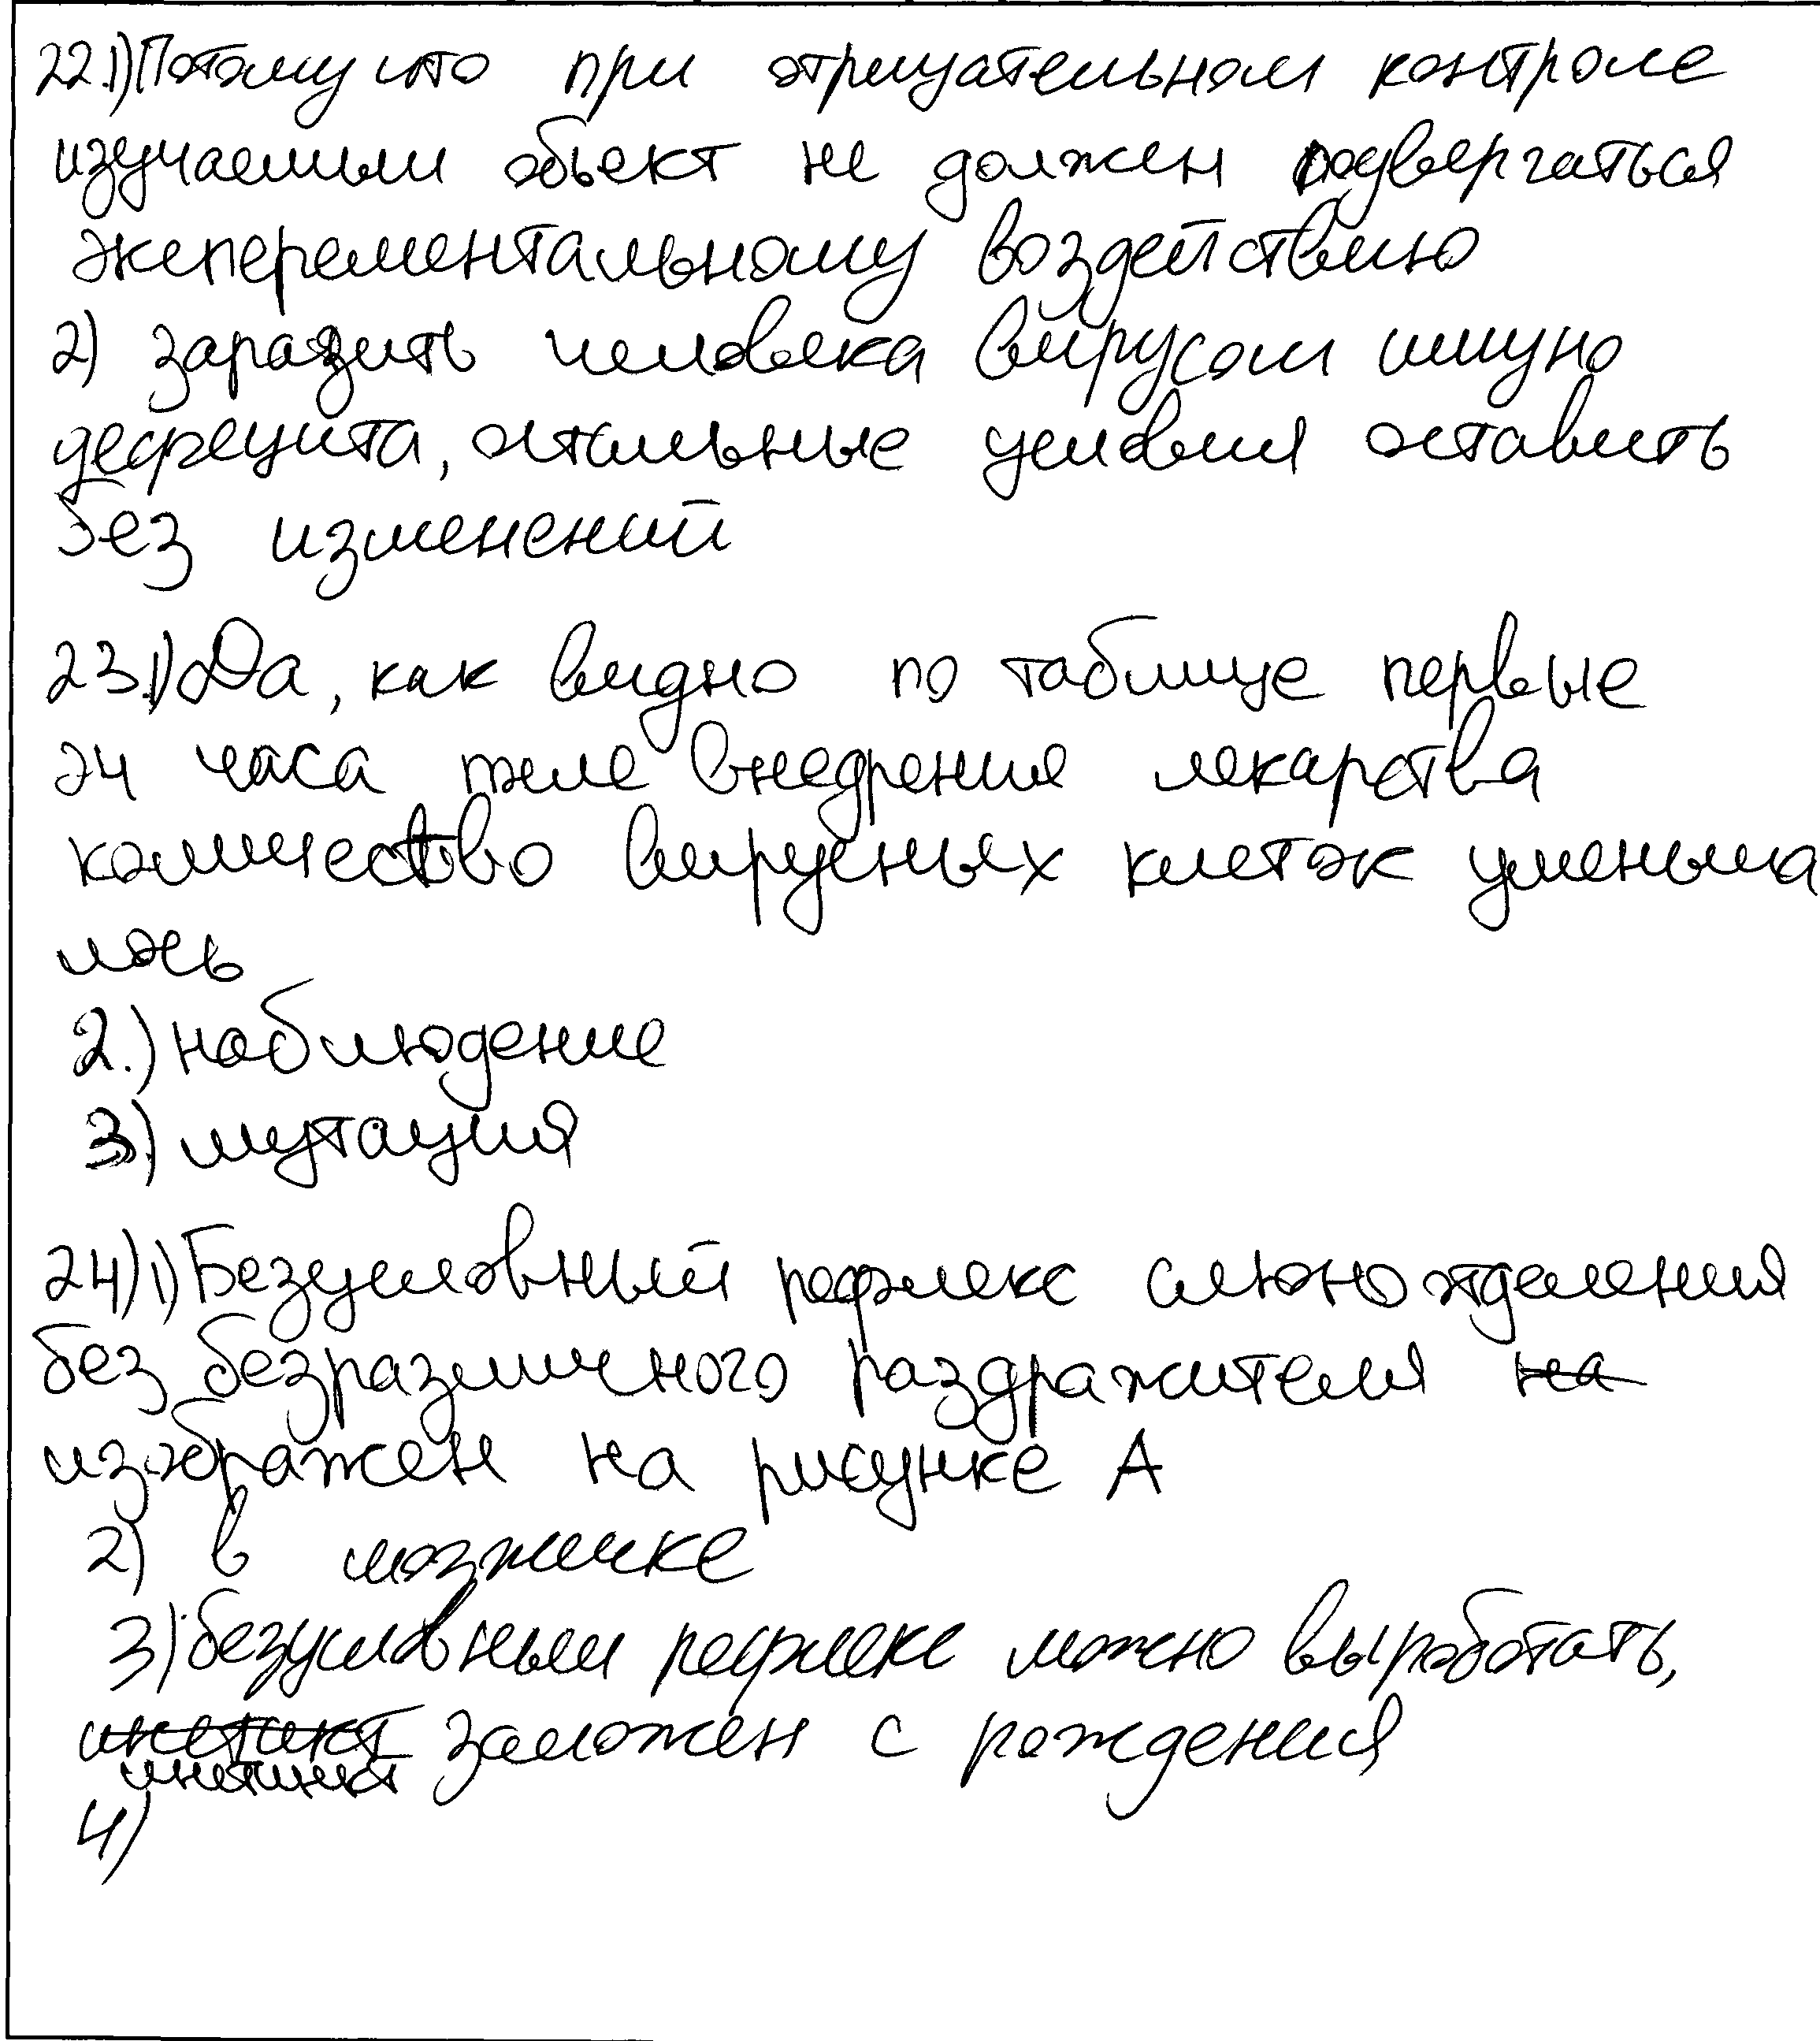 22.1) Потому что при отрицательном контроле
изучаемым объект не должен подвергаться
эксперементальному воздействию
2) заразить человека вирусом имуно
дефецита, остальные условия оставить
без изменений
23.1) Да, как видно по таблице первые
24 часа после внедрения лекарства
количество вирусных клеток уменьша
лось
2.) наблюдение
3.) мутация
24) 1) Безусловный рефлекс слюноотделения
без безразличного раздражителя на
изображен на рисунке А
2) в мозжичке
3) безусловным рефлекс можно выработать,
инстинкт заложен с рождения
инстинкт
4)